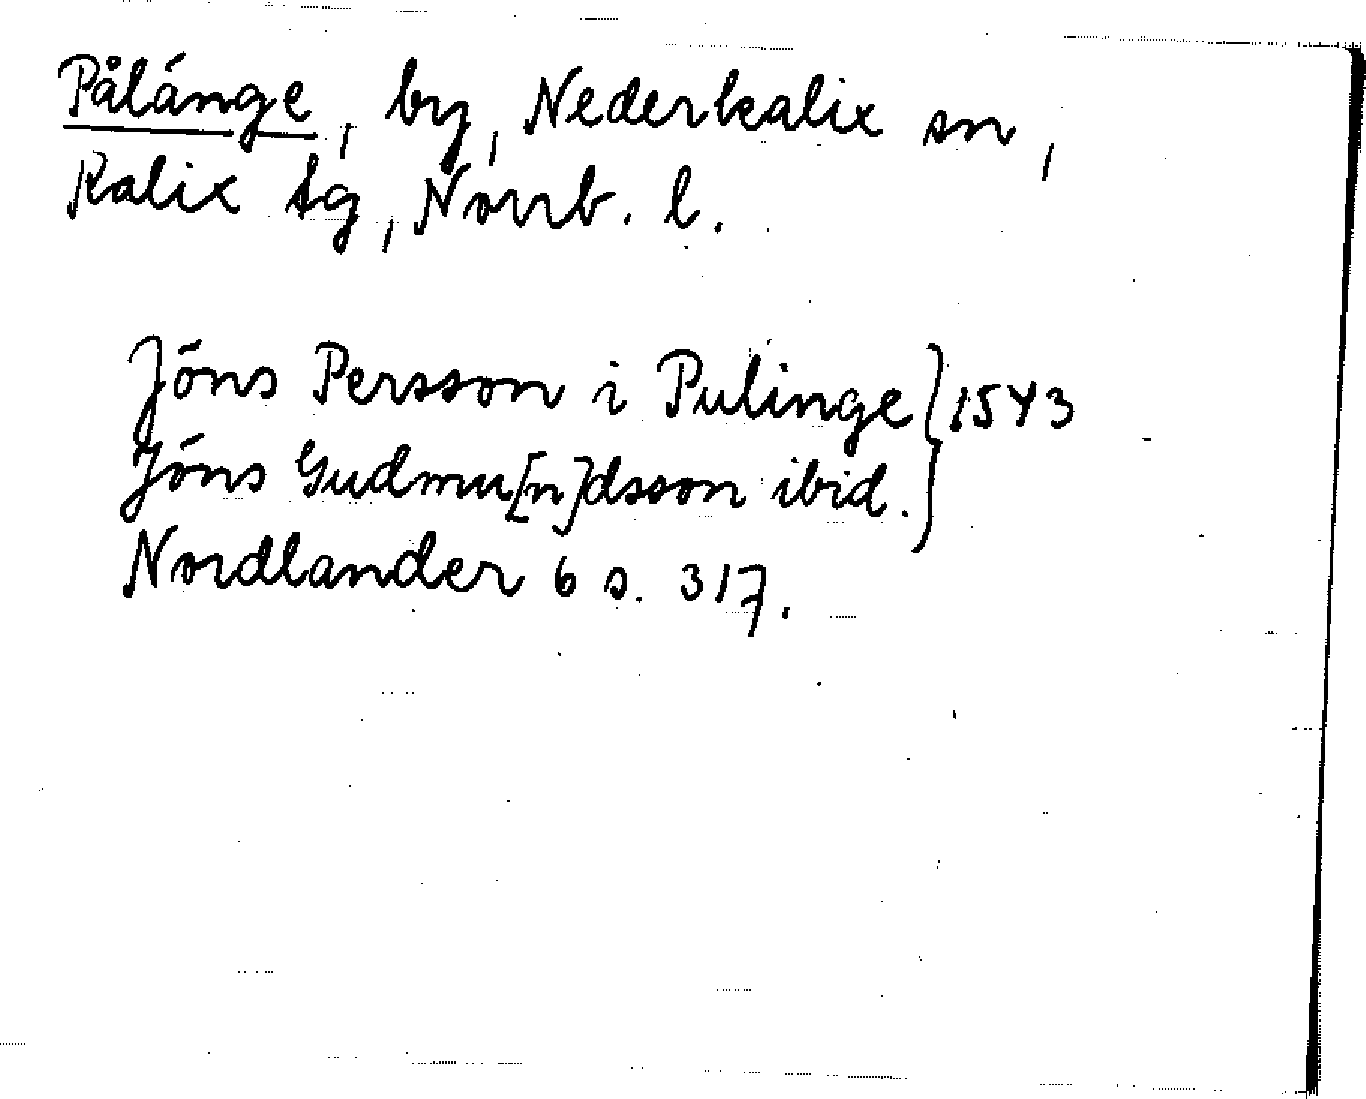 Pålänge, by, Nederkalix sn,
Kalix tg, Norrb. l.
Jöns Persson i Pulinge } 1543
Jöns Gudmu[n]dsson ibid.
Nordlander 6 s. 317.